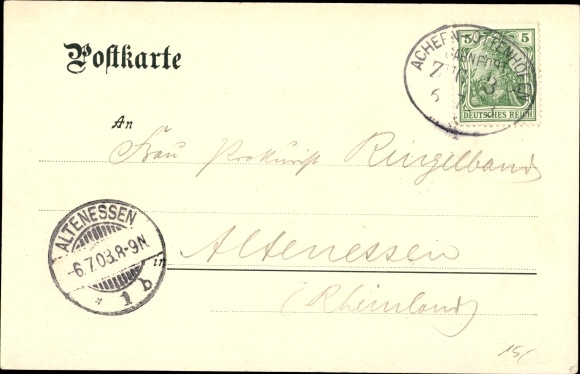 Postkarte
ACHERN-OTTENHÖFEN
BAHNPOST
5 5
DEUTSCHES REICH
An
Frau Prokurist Ringelband
ALTENESSEN
-6.7.03.8-9N.
* 1 b
in
Altenessen
(Rheinland)